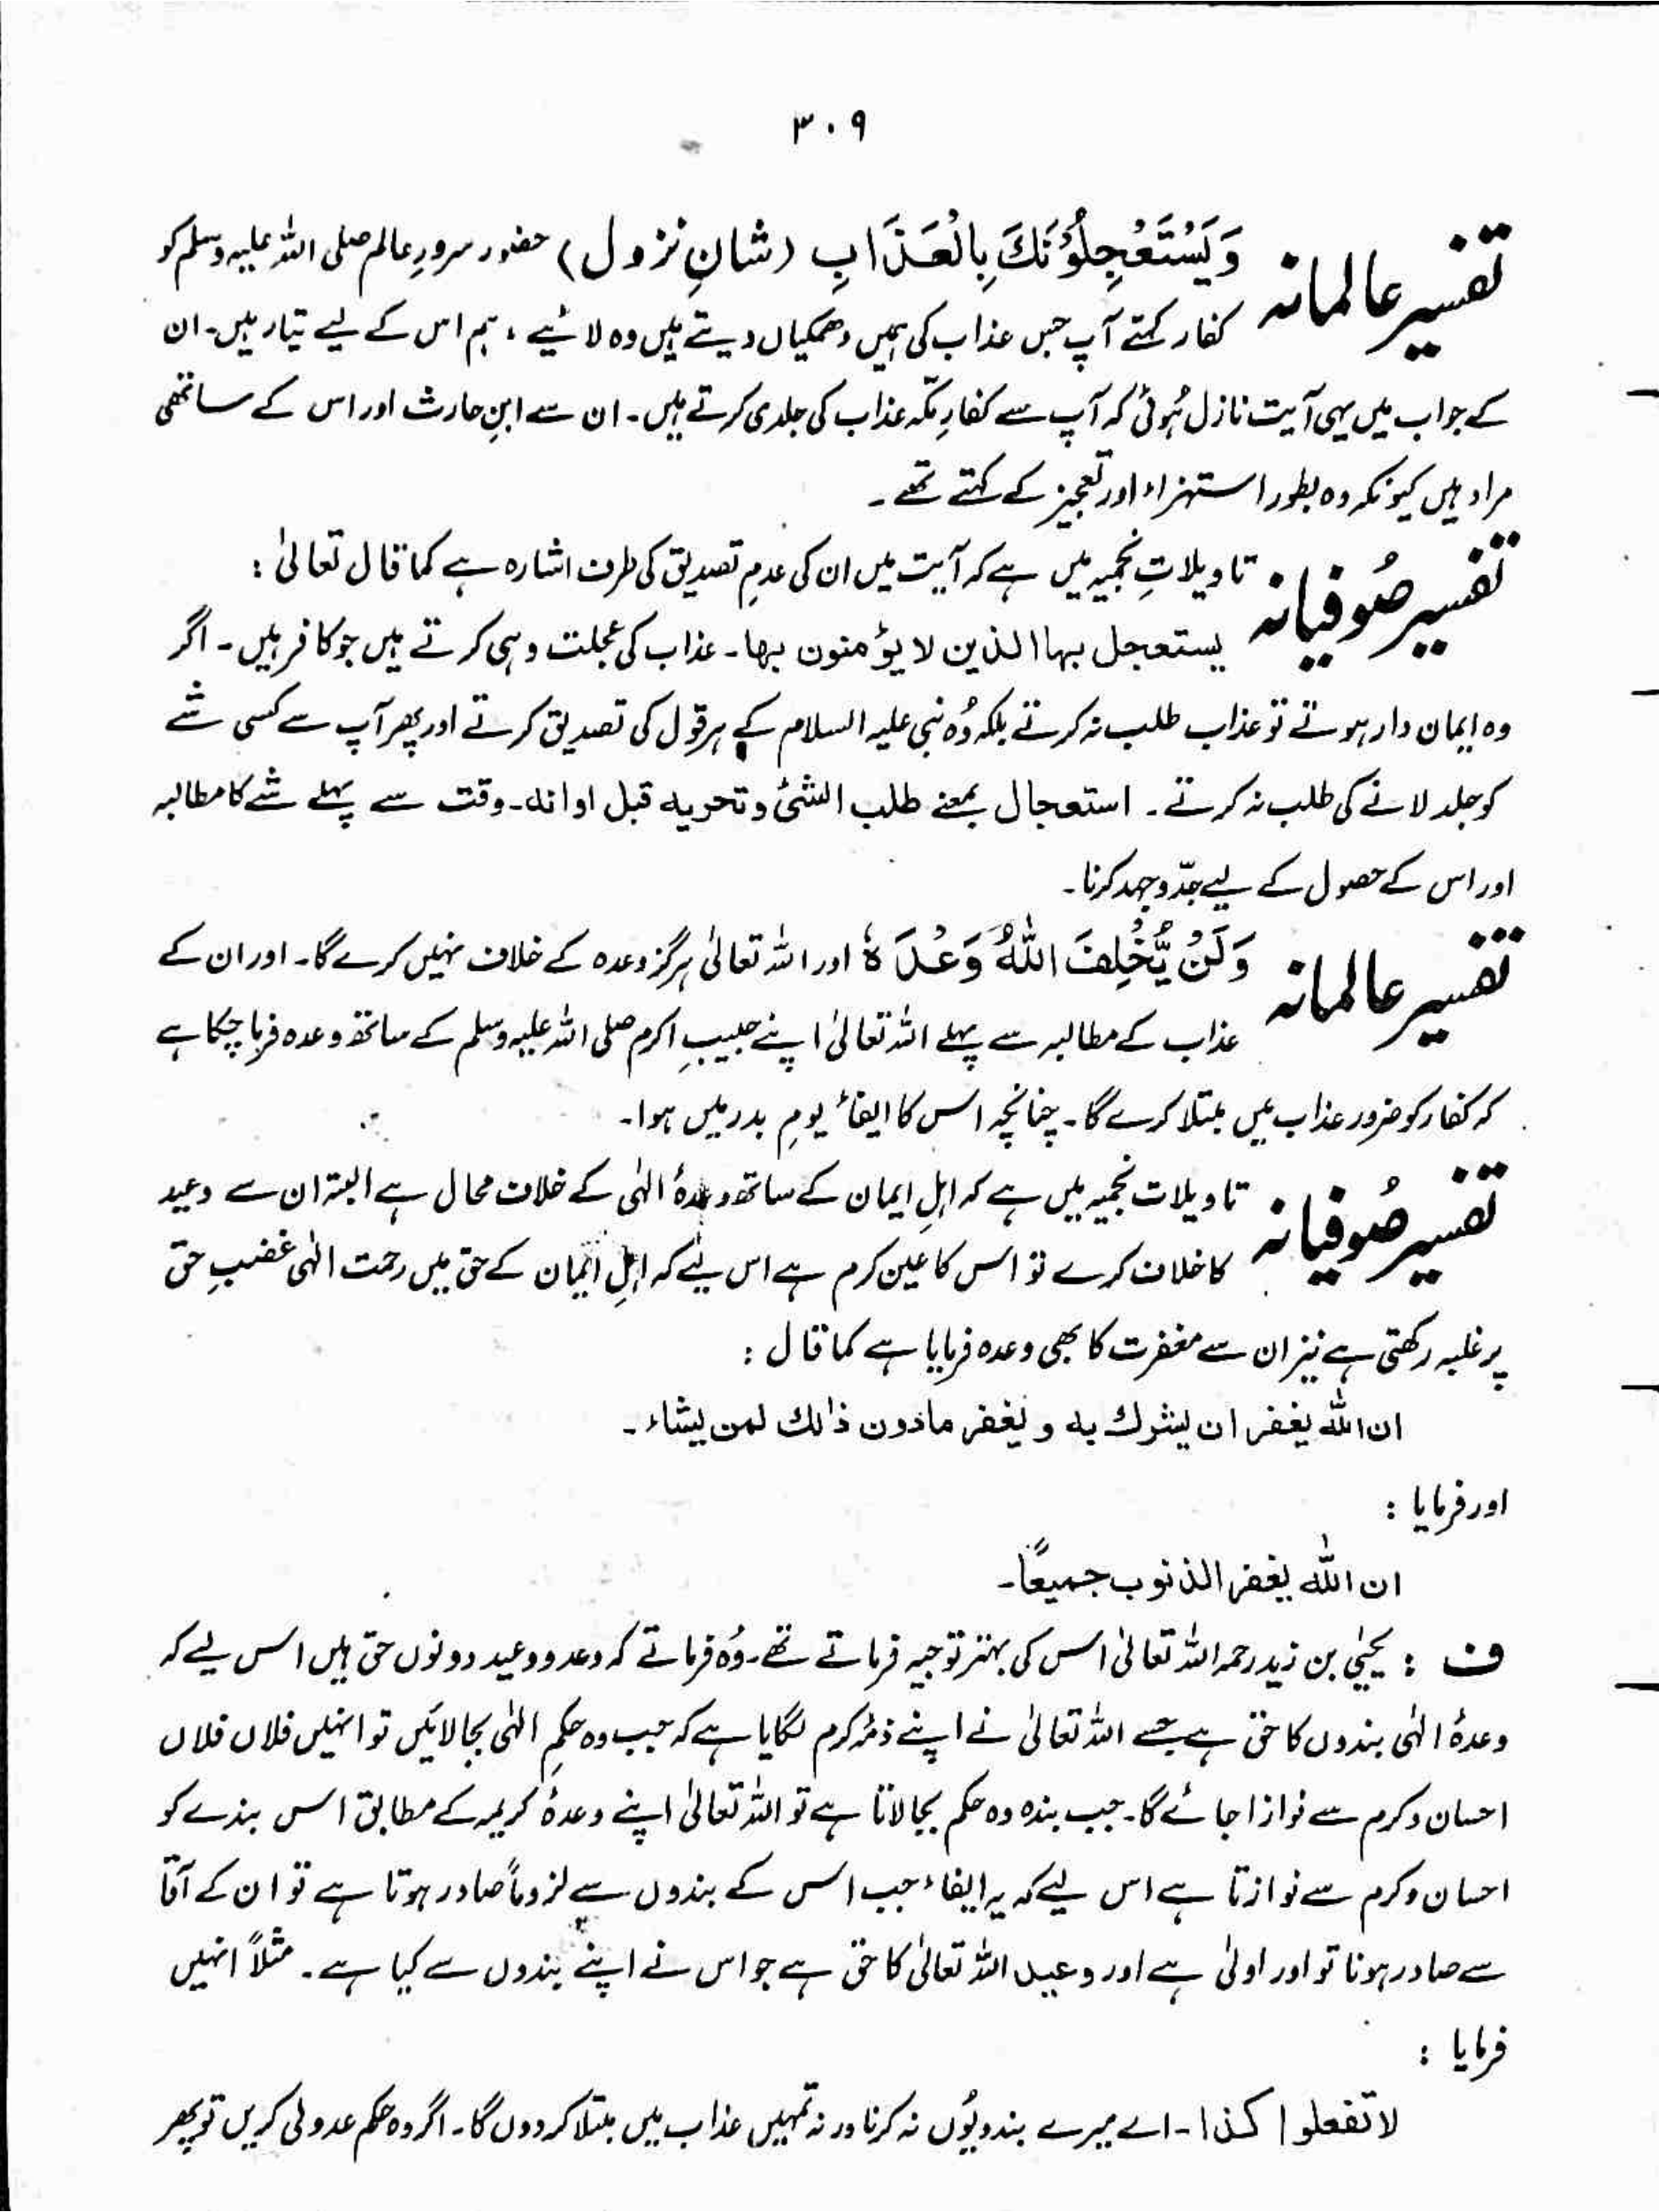 ۳۰۹
تفسیر عالمانہ وَيَسْتَعْجِلُوْنَكَ بِالْعَذَابِ (شانِ نزول) حضور سرورِ عالم صلی اللہ علیہ وسلم کو
کفار کہتے آپ جس عذاب کی ہمیں دھمکیاں دیتے ہیں وہ لائیے ، ہم اس کے لیے تیار ہیں۔ ان
کے جواب میں یہی آیت نازل ہُوئی کہ آپ سے کفارِ مکّہ عذاب کی جلدی کرتے ہیں۔ ان سے ابنِ حارث اور اس کے ساتھی
مراد ہیں کیونکہ وہ بطور استہزاء اور تعجیز کے کہتے تھے۔
تفسیر صُوفیانہ تاویلاتِ نجمیہ میں ہے کہ آیت میں ان کی عدمِ تصدیق کی طرف اشارہ ہے کما قال تعالیٰ :
یستعجل بہا الذین لا یؤمنون بہا۔ عذاب کی عجلت وہی کرتے ہیں جو کافر ہیں۔ اگر
وہ ایمان دار ہوتے تو عذاب طلب نہ کرتے بلکہ وُہ نبی علیہ السلام کے ہر قول کی تصدیق کرتے اور پھر آپ سے کسی شے
کو جلد لانے کی طلب نہ کرتے۔ استعجال بمعنے طلب الشئ و تحریه قبل اوانه۔ وقت سے پہلے شے کا مطالبہ
اور اس کے حصول کے لیے جدّوجہد کرنا۔
تفسیر عالمانہ وَلَنْ يُّخْلِفَ اللّٰهُ وَعْدَهٗ اور اللہ تعالیٰ ہرگز وعدہ کے خلاف نہیں کرے گا۔ اور ان کے
عذاب کے مطالبہ سے پہلے اللہ تعالیٰ اپنے حبیبِ اکرم صلی اللہ علیہ وسلم کے ساتھ وعدہ فرما چکا ہے
کہ کفار کو ضرور عذاب میں مبتلا کرے گا۔ چنانچہ اس کا ایفاٴ یومِ بدر میں ہوا۔
تفسیر صُوفیانہ تاویلات نجمیہ میں ہے کہ اہلِ ایمان کے ساتھ وعدۂ الٰہی کے خلاف محال ہے البتہ ان سے وعید
کا خلاف کرے تو اس کا عین کرم ہے اس لیے کہ اہلِ ایمان کے حق میں رحمت الٰہی غضبِ حق
پر غلبہ رکھتی ہے نیز ان سے مغفرت کا بھی وعدہ فرمایا ہے کما قال :
ان اللّٰه یغفر ان یشرك به و یغفر مادون ذالك لمن یشاء۔
اور فرمایا :
ان اللّٰه یغفر الذنوب جمیعًا۔
ف : یحییٰ بن زید رحمہ اللہ تعالیٰ اس کی بہتر توجیہ فرماتے تھے۔ وُہ فرماتے کہ وعد و وعید دونوں حق ہیں اس لیے کہ
وعدۂ الٰہی بندوں کا حق ہے جسے اللہ تعالیٰ نے اپنے ذمّہ کرم لگایا ہے کہ جب وہ حکمِ الٰہی بجا لائیں تو انہیں فلاں فلاں
احسان و کرم سے نوازا جائے گا۔ جب بندہ وہ حکم بجا لاتا ہے تو اللہ تعالیٰ اپنے وعدۂ کریمہ کے مطابق اس بندے کو
احسان و کرم سے نوازتا ہے اس لیے کہ یہ ایفاء جب اس کے بندوں سے لزوماً صادر ہوتا ہے تو ان کے آقا
سے صادر ہونا تو اور اولیٰ ہے اور وعید اللہ تعالیٰ کا حق ہے جو اس نے اپنے بندوں سے کیا ہے۔ مثلاً انہیں
فرمایا :
لا تفعلوا کذا۔ اے میرے بندو یُوں نہ کرنا ورنہ تمہیں عذاب میں مبتلا کر دوں گا۔ اگر وہ حکم عدولی کریں تو پھر